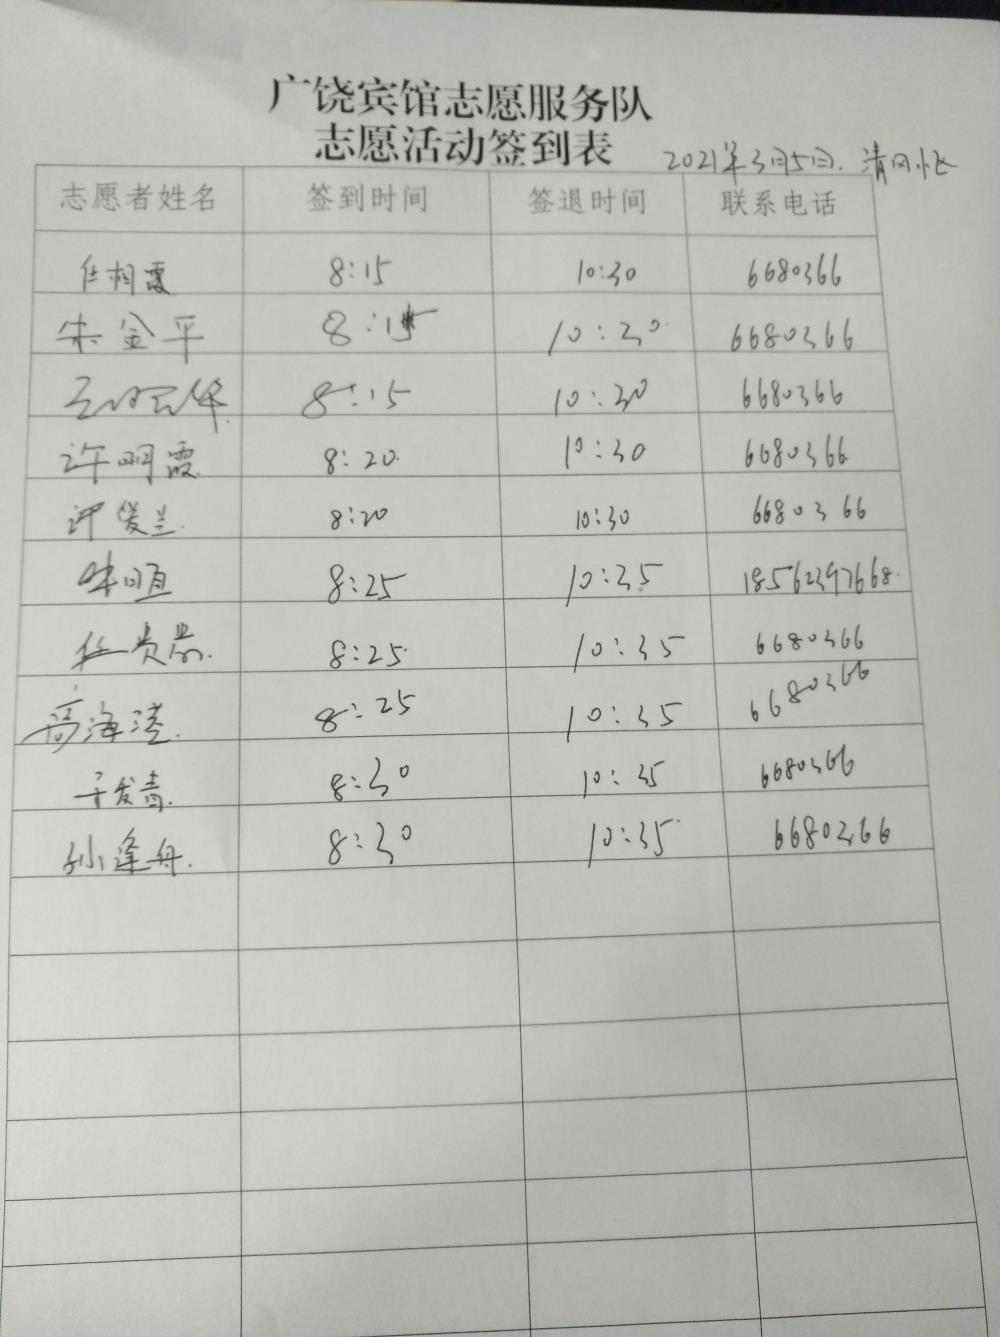 广饶宾馆志愿服务队
志愿活动签到表
2021年3月5日. 清风
志愿者姓名 签到时间 签退时间 联系电话
任相霞 8:15 10:30 6680366
朱金平 8:15 10:30 6680366
8:15 10:30 6680366
许明霞 8:20. 10:30 6680366
许俊兰. 8:20 10:30 6680366
8:25 10:35 18562397668.
8:25. 10:35 6680366
高海 8:25 10:35 6680366
于发青. 8:30 10:35 6680366
孙逢舟. 8:30 10:35 6680366